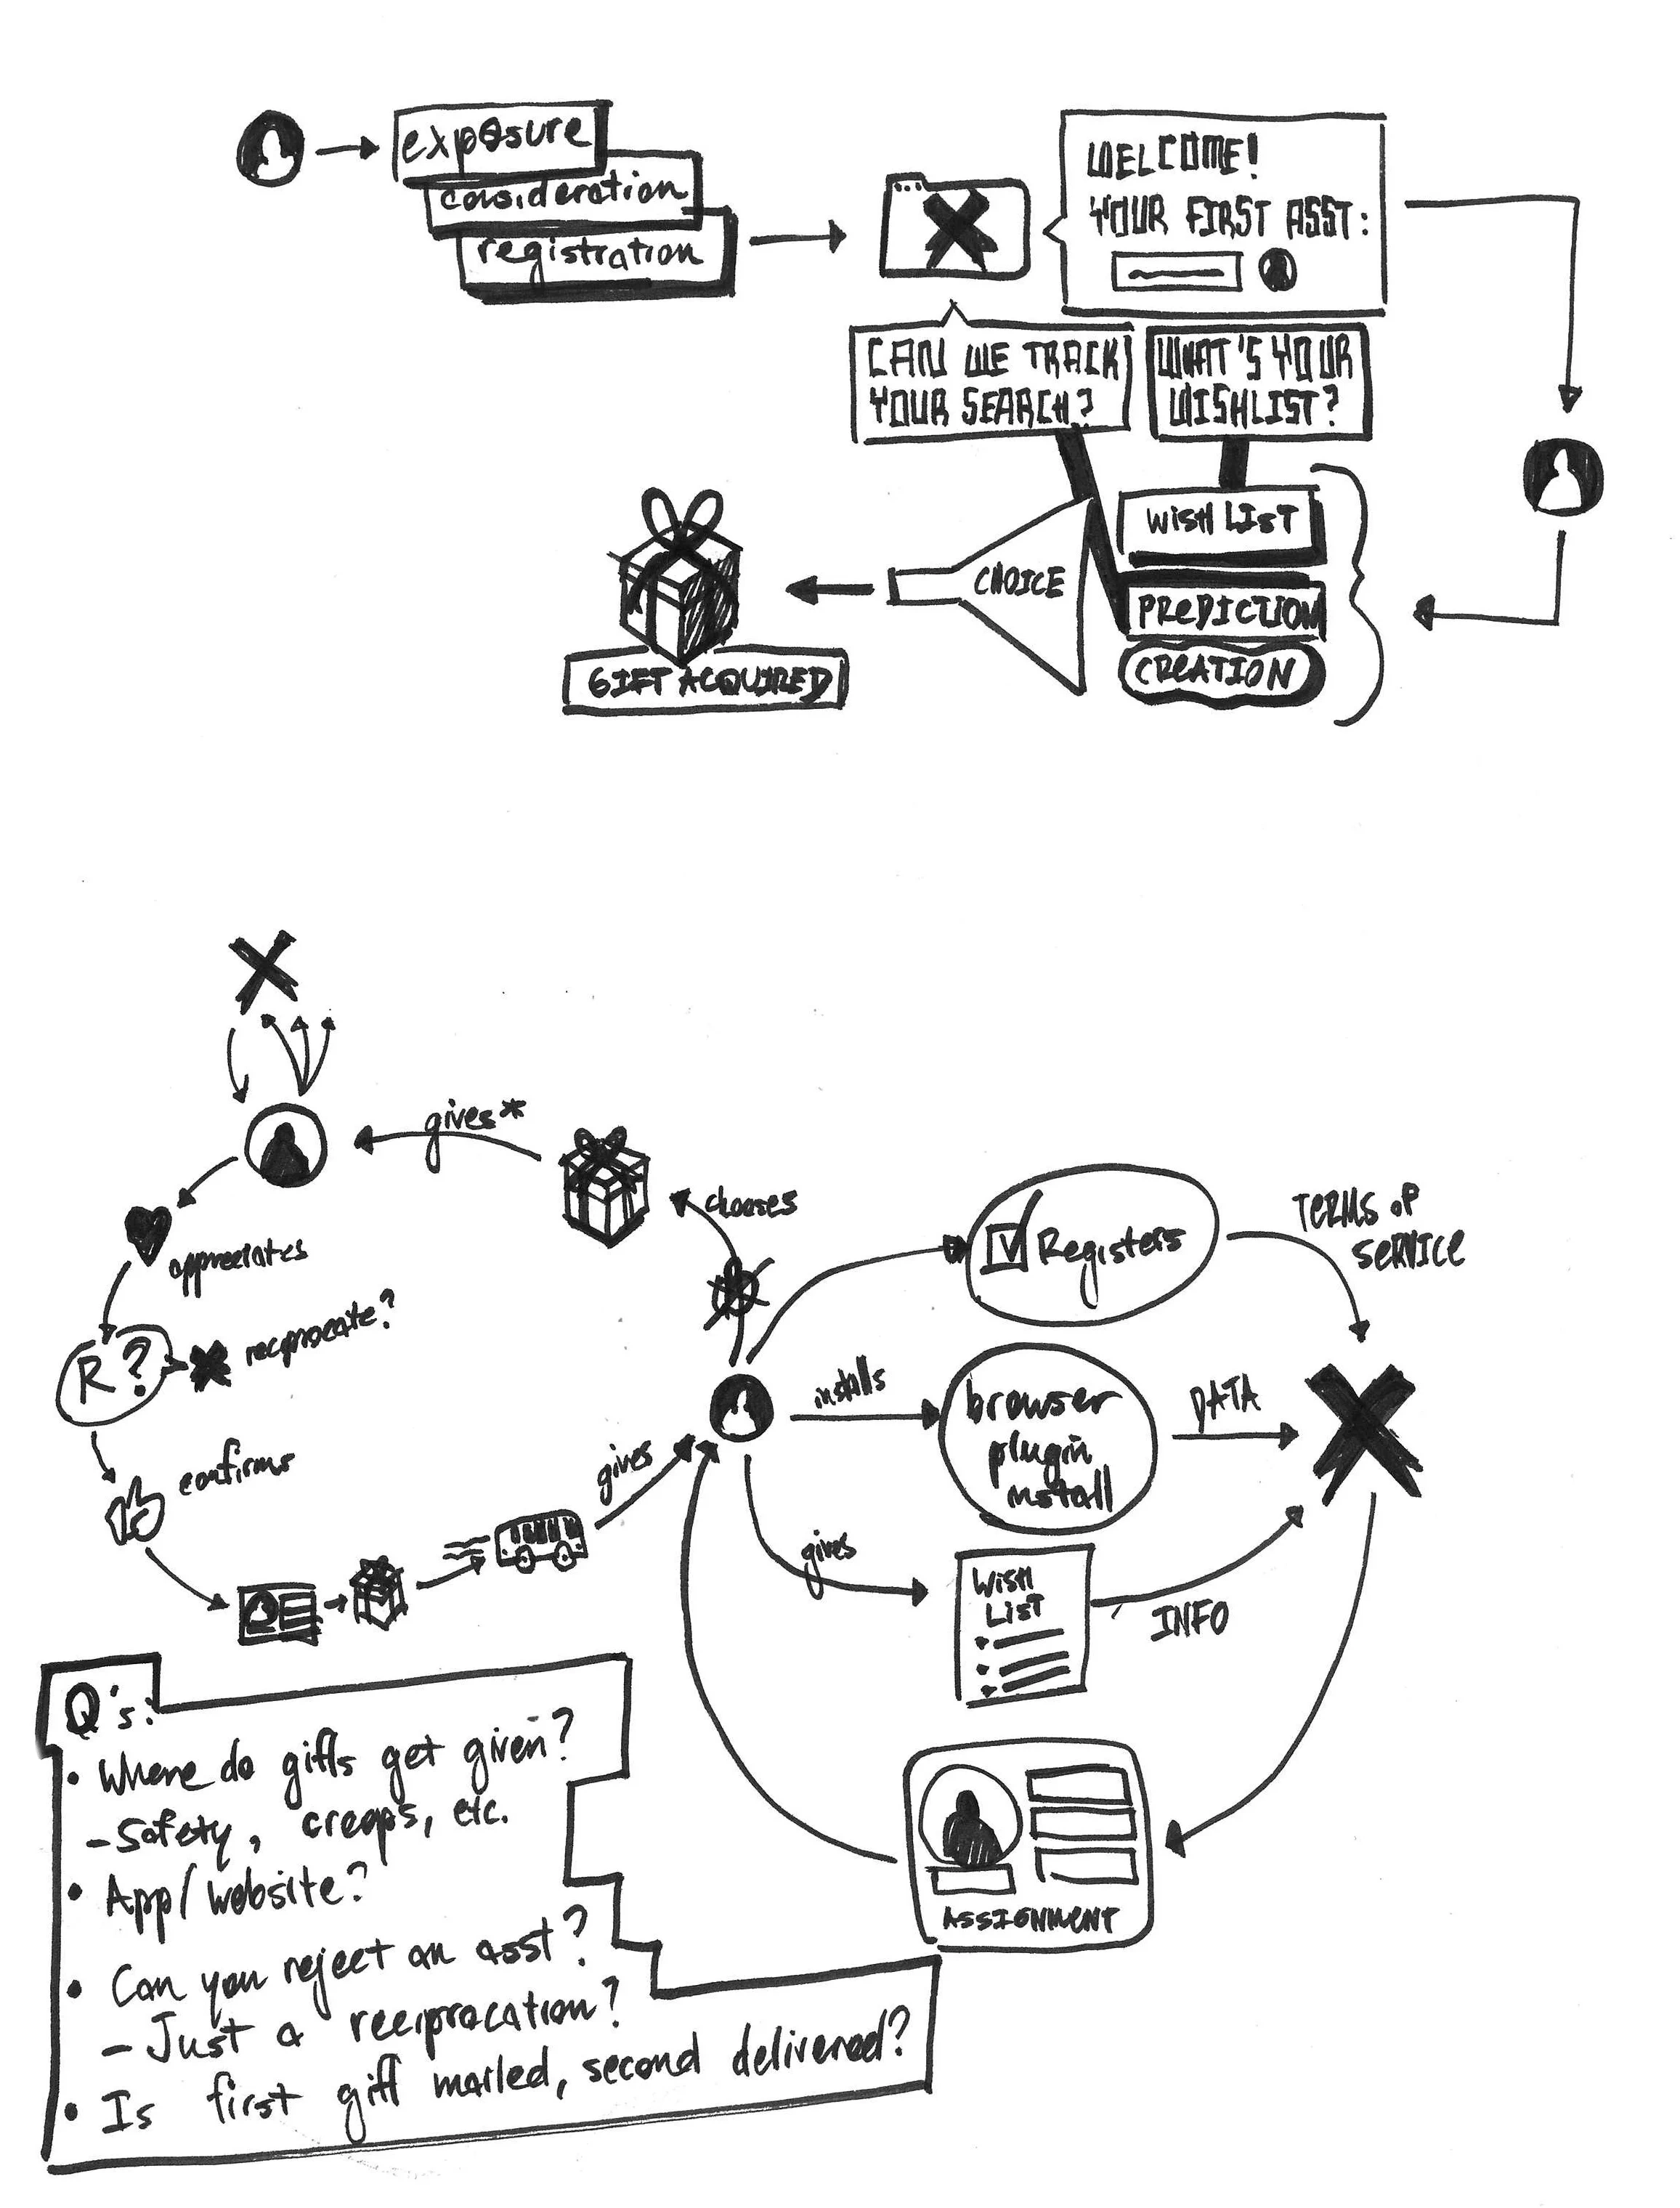 exposure
consideration
registration
WELCOME!
YOUR FIRST ASST:
CAN WE TRACK
YOUR SEARCH?
WHAT'S YOUR
WISHLIST?
WISH LIST
PREDICTION
CREATION
CHOICE
GIFT ACQUIRED
gives*
chooses
appreciates
R?
reciprocate?
confirms
gives
Registers
TERMS OF
SERVICE
installs
browser
plugin
install
DATA
gives
WISH
LIST
INFO
ASSIGNMENT
Q's:
• Where do gifts get given?
- Safety, creeps, etc.
• App/website?
• Can you reject an asst?
- Just a reciprocation?
• Is first gift mailed, second delivered?